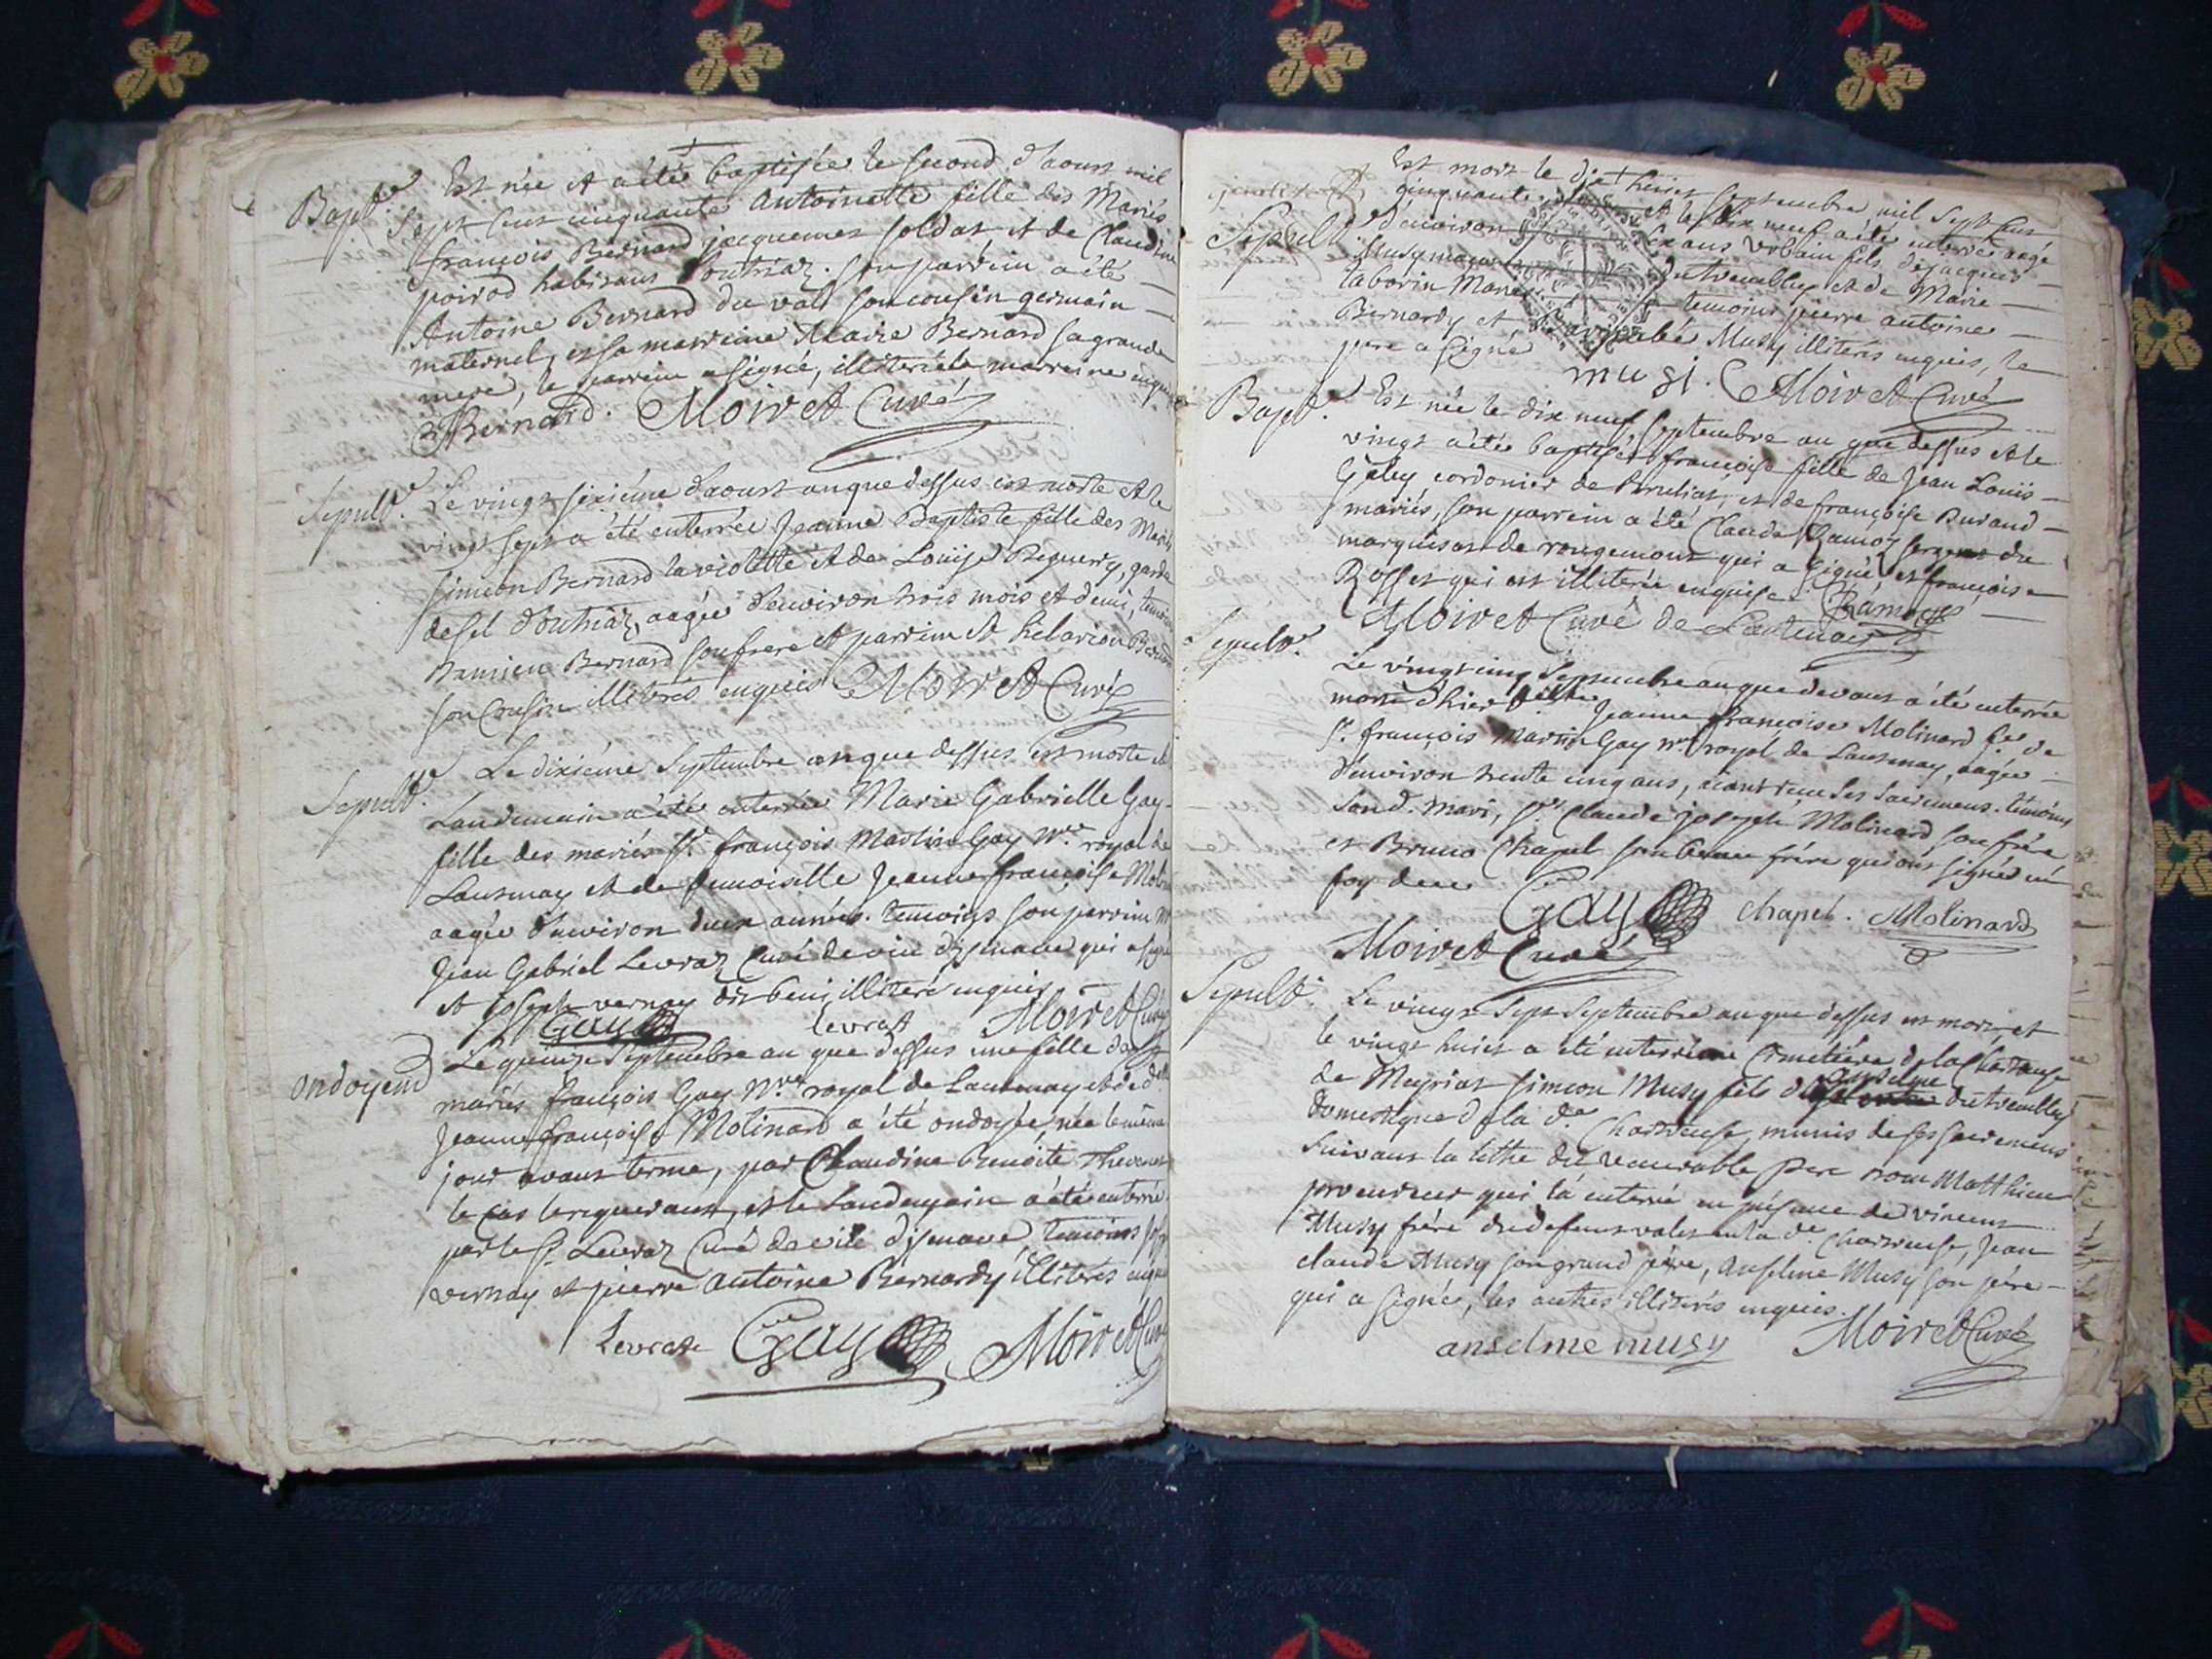 Bapt.e Est née et a été baptisée le second d'aoust mil
sept cent cinquante Antoinette fille des Mariés
françois Bernard jacquemet soldat et de Claudine
poirod habitans d'outriaz. son parrein a été
Antoine Bernard du valt son cousin germain
maternel, et sa marreine Marie Bernard sa grande
mere, le parrein a signé, illiterée la marreine enquise
Bernard. Moiret Curé
Sepult.e Le vingt sixiéme d'aoust an que dessus est morte et le
vingt sept a été enterrée Jeanne Baptiste fille des Mariés
simeon Bernard la violette et de Louise Reguery, garde
de sel d'outriaz, aagée d'environ trois mois et demi, temoins
Damien Bernard son frere et parrein et hilarion Bernard
son Cousin illiterés enquis Moiret Curé
Sepult.e Le dixiéme Septembre an que dessus est morte et
Landemain a été enterrée Marie Gabrielle Gay
fille des mariés Sr. françois Martin Gay Nre. royal de
Lantenay et de demoiselle Jeanne françoise Molinard
aagée d'environ deux années. temoins son parrein Mr
Jean Gabriel Levraz Curé de vieu d'izenave qui a signé
et joseph vernay dit beni, illiteré enquis
Gay levrat Moiret Curé
ondoyem.t Le quinze Septembre an que dessus une fille des
mariés françois Gay Nre. royal de Lantenay et de dlle
Jeanne françoise Molinard a été ondoyée, née le même
jour avant terme, par Claudine Benoite Thevenet
le cas le requerant, et le Landemain a été enterrée
par le Sr. Levraz Curé de vieu d'izenave, temoins joseph
vernay et pierre antoine Bernardy illiterés enquis
Levrat Gay Moiret Curé
Est mort le dix huict septembre mil sept cent
cinquante, et le dix neuf a été enterré aagé
Sepult.e d'environ six ans urbain fils de jacques
Musy maçon du tremblay et de Marie
taborin Mariés temoins pierre antoine
Bernardy et Barthelé Musy illiterés enquis, le
pere a signé
musi. Moiret Curé
Bapt.e Est née le dix neuf septembre an que dessus et le
vingt a été baptisée françoise fille de Jean Louis
Galey cordonier de Bruliat, et de françoise Burand
mariés, son parrein a été Claude Ramoz sergent du
marquisat de rougemont qui a signé, et françoise
Rosset qui est illiterée enquise. Ramoz
Moiret Curé de Lantenay
Sepult.e Le vingt cinq Septembre an que devant a été enterrée
morte d'hier Jeanne françoise Molinard fe. de
Sr. françois Martin Gay nre royal de Lantenay, aagée
d'environ trente cinq ans, aiant recu les sacremens. temoins
son d. mari, Sr. Claude joseph Molinard son frére
et Bruno Chapel son beau frére qui ont signé en
foy de ce Gay chapel. Molinard
Moiret Curé
Sepult.e Le vingt sept septembre an que dessus est mort, et
le vingt huict a été enterré au Cimetiére de la Chartreuse
de Meyriat simeon Musy fils d'anselme du tremblay
domestique de la de. Chartreuse, munis de ses sacremens
suivant la lettre du venerable pere Dom Matthieu
procureur qui l'a enterré en présence de vincent
Musy frére du defunt valet en la de. Chartreuse, Jean
claude Musy son grand pére, Anselme Musy son pére
qui a signé, les autres illiterés enquis.
anselme musy Moiret Curé